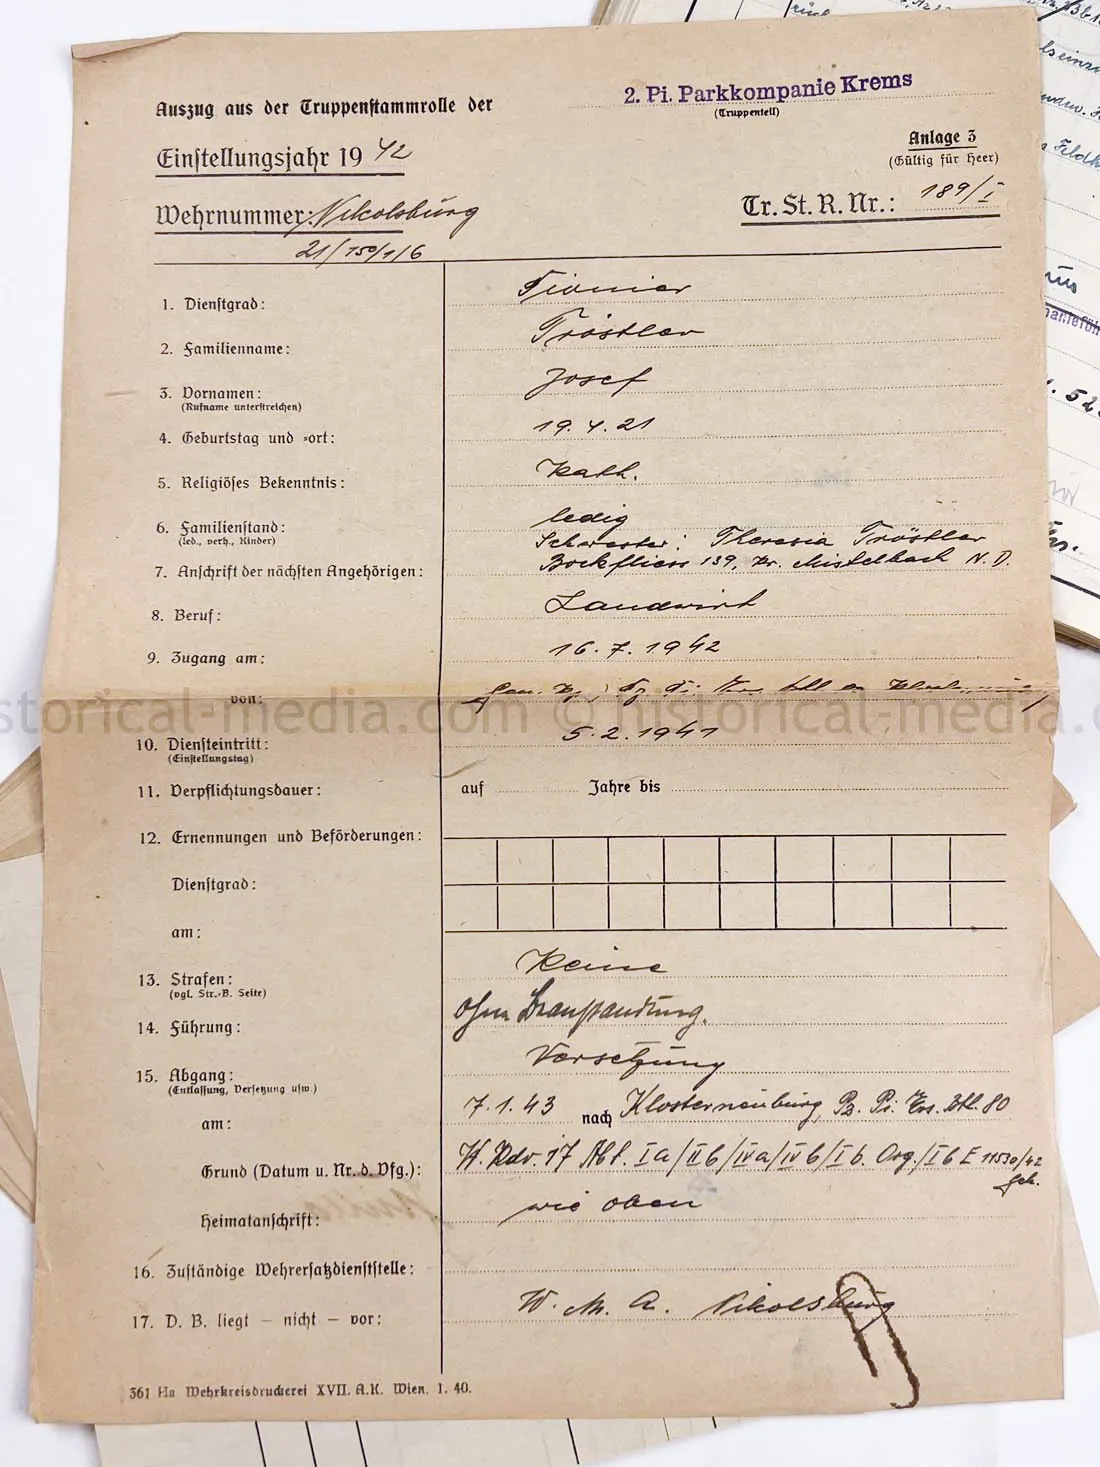 2. Pi. Parkkompanie Krems
Auszug aus der Truppenstammrolle der
(Truppenteil)
Anlage 3
(Gültig für Heer)
Einstellungsjahr 19 42
Wehrnummer: Nikolsburg
21/150/1/6
Tr. St. R. Nr.: 189/I
1. Dienstgrad: Pionier
2. Familienname: Tröstler
3. Vornamen: Josef
(Rufname unterstreichen)
4. Geburtstag und -ort: 19.4.21
5. Religiöses Bekenntnis: Kath.
6. Familienstand: ledig
(led., verh., Kinder)
Schwester: Theresia Tröstler
7. Anschrift der nächsten Angehörigen: Bockfliess 139, Kr. Mistelbach N.D.
8. Beruf: Landwirt
9. Zugang am: 16.7.1942
von: Gen. Kp.
historical-media.com © historical-media.com
10. Diensteintritt: 5.2.1941
(Einstellungstag)
11. Verpflichtungsdauer: auf Jahre bis
12. Ernennungen und Beförderungen:
Dienstgrad:
am:
13. Strafen: Keine
(vgl. Str.-B. Seite)
14. Führung: ohne Beanstandung.
15. Abgang: Versetzung
(Entlassung, Versetzung usw.)
am: 7.1.43 nach Klosterneuburg, Pz. Pi. Ers. Btl. 80
Grund (Datum u. Nr. d. Vfg.): W. Kdo. 17 Abt. Ia/IIb/IVa/IVb/Ib. Org./Ib E 11530/42
geh.
Heimatanschrift: wie oben
16. Zuständige Wehrersatzdienststelle:
W. M. A. Nikolsburg
17. D. B. liegt – nicht – vor:
361 Ha Wehrkreisdruckerei XVII. A.K. Wien. 1. 40.